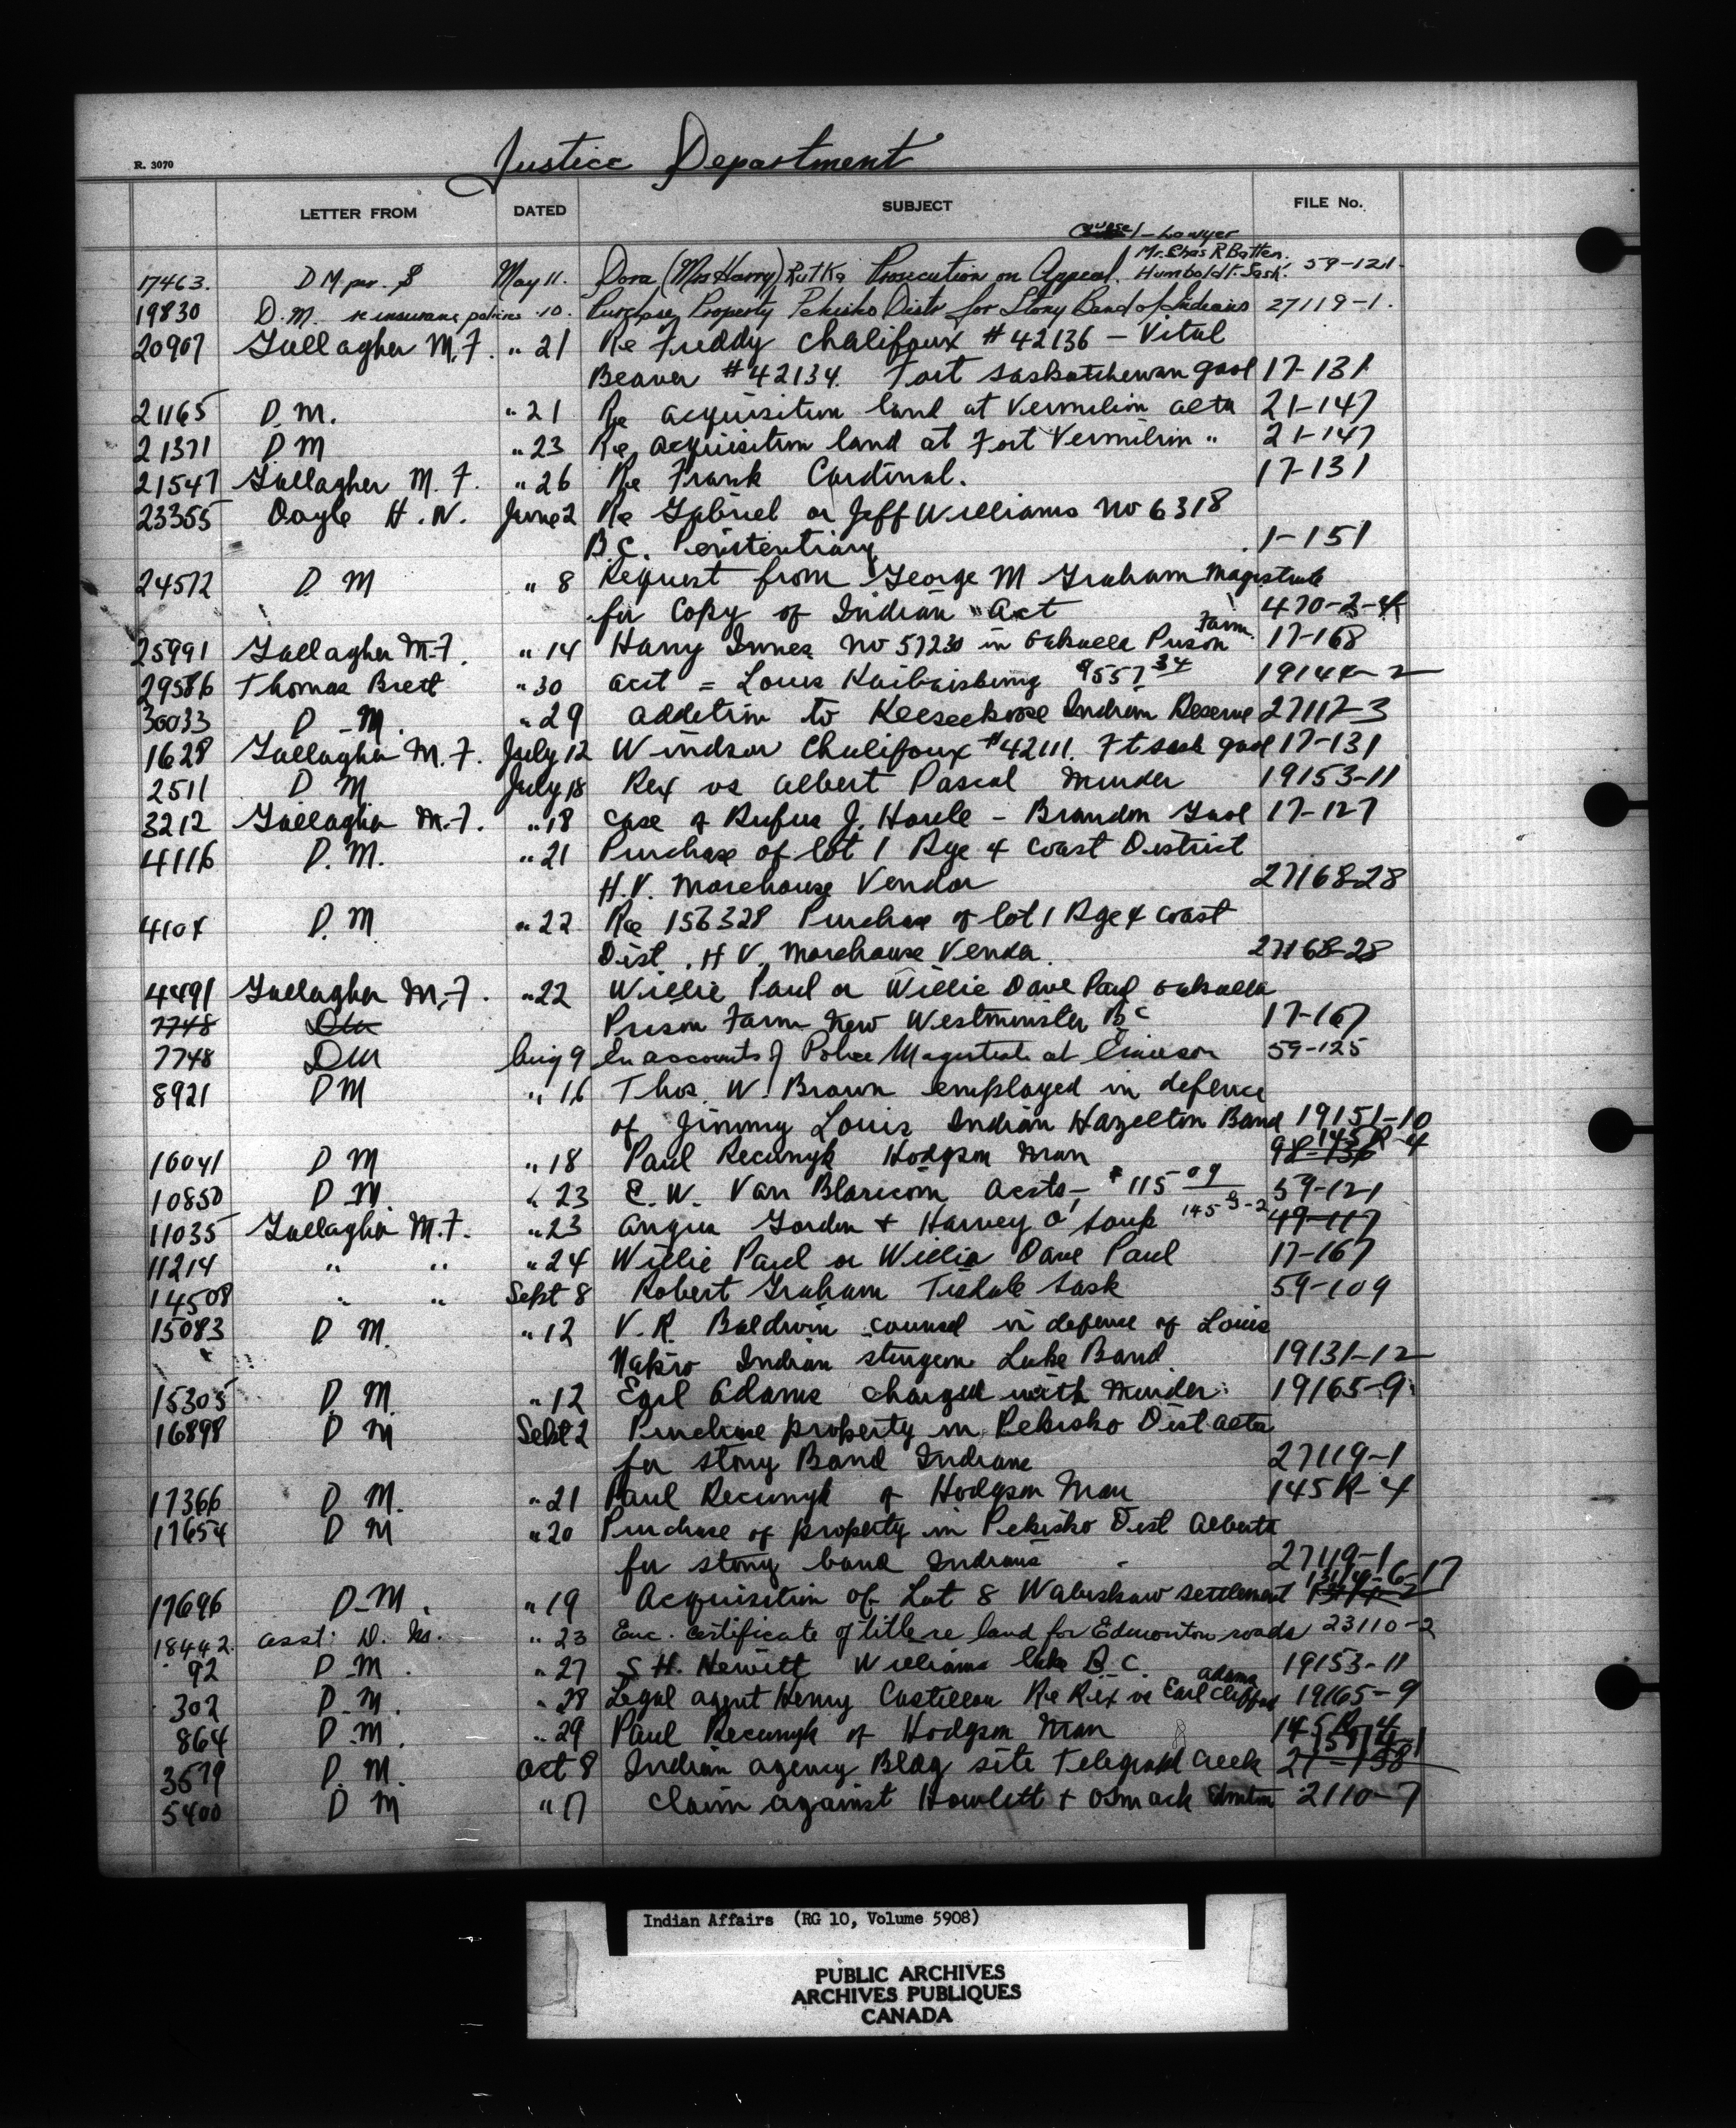 Justice Department
R. 3070
LETTER FROM DATED SUBJECT FILE No.
Counsel - Lawyer
Mr. Chas R Batten.
17463. D M per. May 11. Dora (Mrs Harry) Rutka Prosecution on Appeal. Humboldt. Sask. 59-121.
19830 D.M. re insurance policies " 10. Purchase Property Pekisko Distr for Stony Band of Indians 27119-1.
20907 Gallagher M.F. " 21 Re Freddy Chalifoux # 42136 - Vital
Beaver # 42134. Fort Saskatchewan gaol 17-131
21165 D.M. " 21 Re acquisition land at Vermilion Alta 21-147
21371 D M " 23 Re acquisition land at Fort Vermilion " 21-147
21547 Gallagher M. F. " 26 Re Frank Cardinal. 17-131
23355 Doyle H.N. June 2 Re Gabriel or Jeff Williams No 6318
B.C. Penitentiary 1-151
24572 D. M " 8 Request from George M Graham Magistrate
for Copy of Indian Act 470-2-4
25991 Gallagher M.F. " 14 Harry Innes No 57230 in Oakalla Prison Farm. 17-168
29586 Thomas Brett " 30 acct = Louis $557 34 19144-2
30033 D.M. " 29 addition to Keeseekoose Indian Reserve 27117-3
1628 Gallagher M.F. July 12 Windsor Chalifoux #42111. Ft Sask gaol 17-131
2511 D M July 18 Rex vs Albert Pascal Murder 19153-11
3212 Gallagher M.F. " 18 Case of Rufus J. Houle - Brandon Gaol 17-127
4116 D.M. " 21 Purchase of Lot 1 Rge 4 Coast District
H.V. Morehouse Vendor 27168-28
4104 D.M " 22 Re 156328 Purchase of Lot 1 Rge 4 Coast
Dist. H V. Morehouse Vendor. 27168-28
4491 Gallagher M.F. " 22 Willie Paul or Willie Dave Paul Oakalla
7748 DM Prison Farm New Westminster BC 17-167
7748 DM Aug 9 In accounts of Police Magistrate at Emerson 59-125
8921 DM " 16 Thos. W. Brown employed in defence
of Jimmy Louis Indian Hazelton Band 19151-10
10041 D M " 18 Paul Recunyk Hodgson Man 98-136 145R-4
10850 D.M. " 23 E. W. Van Blaricom Accts - $115 09 59-121
11035 Gallagher M.F. " 23 Angus Gordon & Harvey O'Soup 145 G-2 49-117
11214 " " " 24 Willie Paul or Willie Dave Paul 17-167
14508 " " Sept 8 Robert Graham Tisdale Sask 59-109
15083 D M. " 12 V.R. Baldwin counsel in defense of Louis
Indian Sturgeon Lake Band. 19131-12
15305 D. M. " 12 Earl Adams charged with Murder. 19165-9
16898 D M Sept 2 Purchase property in Pekisko Dist Alta
for Stony Band Indians 27119-1
17366 D M. " 21 Paul Recunyk of Hodgson Man 145R-4
17654 D M " 20 Purchase of property in Pekisko Dist Alberta
for stony band Indians 27119-1
17696 D.M. " 19 Acquisition of Lot 8 Wabiskaw settlement
18442. asst. D. M. " 23 Enc. certificate of title re land for Edmonton roads 23110-2
92 D.M. " 27 S.H. Hewitt Williams Lake B.C. 19153-11
302 D.M. " 28 Legal agent Henry Castillou Re Rex vs Earl Clifford Adams 19165-9
864 D.M. " 29 Paul Recunyk of Hodgson Man 145R-4
3679 D. M. Oct 8 Indian Agency Bldg site Telegraph Creek 21-158
5400 D M " 17 Claim against Howlett & Osmack Edmonton 2110-7
Indian Affairs (RG 10, Volume 5908)
PUBLIC ARCHIVES
ARCHIVES PUBLIQUES
CANADA